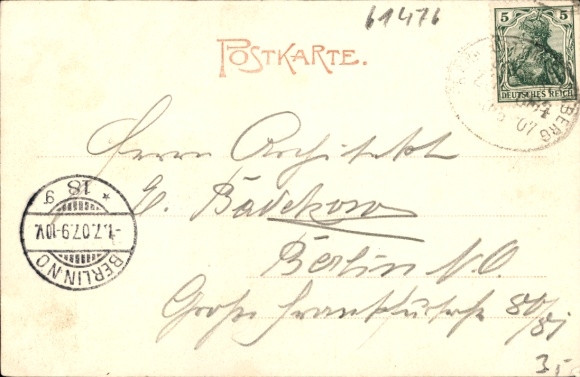 61476
POSTKARTE.
5 5
DEUTSCHES REICH
BERG
07
Herrn Architekt
E.
Berlin N.O.
Große Frankfurterstr 80/81
BERLIN NO
-1.7.07.9-10V.
* 18 g
3,-